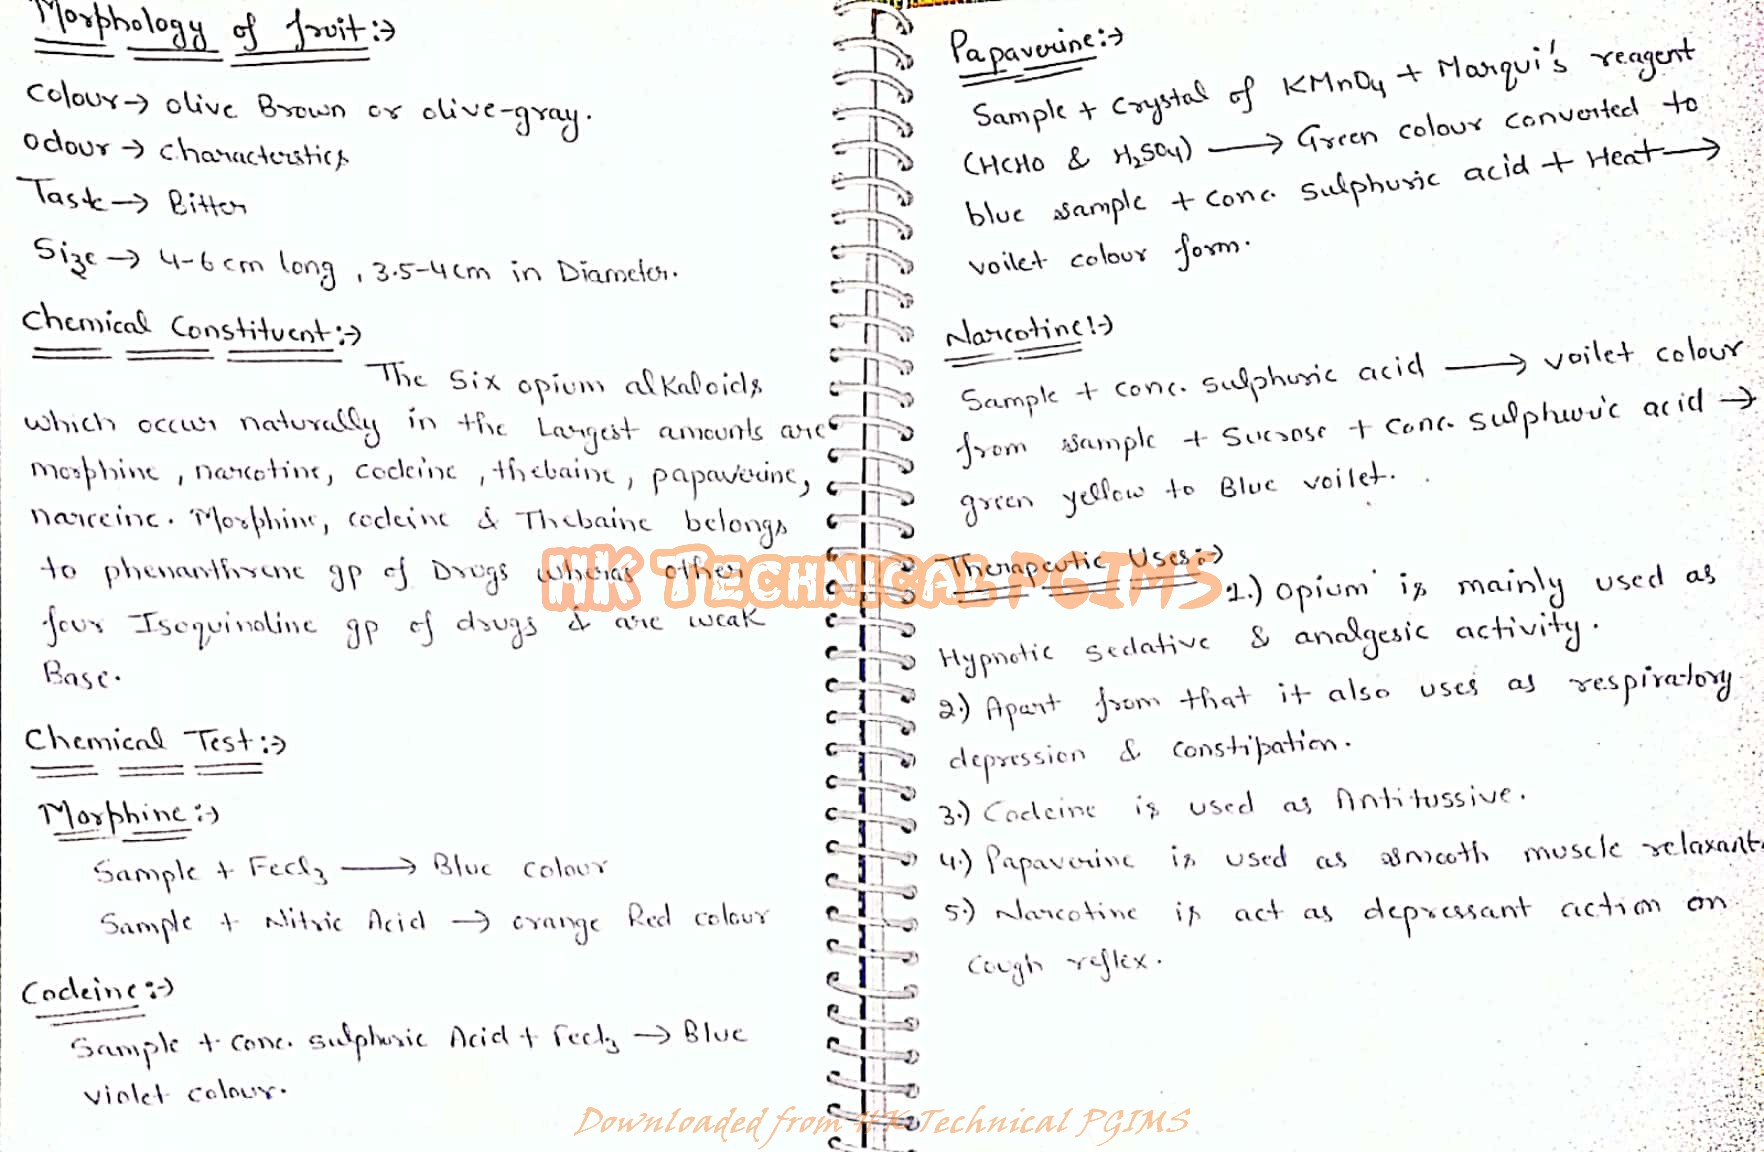 Morphology of fruit:→
Colour→ olive Brown or olive-gray.
odour → characterstics
Taste→ Bitter
Size → 4-6 cm long, 3.5-4cm in Diameter.
Chemical Constituent:→
The Six opium alkaloids
which occur naturally in the Largest amounts are
morphine, narcotine, codeine, thebaine, papaverine,
narceine. Morphine, codeine & Thebaine belongs
to phenanthrene gp of Drugs wheras other
four Isoquinoline gp of drugs & are weak
Base.
Chemical Test:→
Morphine:→
Sample + Fecl3 → Blue colour
Sample + Nitric Acid → orange Red colour
Codeine:→
Sample + conc. sulphuric Acid + Fecl3 → Blue
violet colour.
Papaverine:→
Sample + Crystal of KMnO4 + Marqui's reagent
(HCHO & H2SO4) → Green colour converted to
blue sample + conc. sulphuric acid + Heat→
voilet colour form.
Narcotine:→
Sample + conc. sulphuric acid → voilet colour
from sample + Sucrose + conc. sulphuric acid →
green yellow to Blue voilet.
Therapeutic Uses:→
1.) Opium is mainly used as
Hypnotic sedative & analgesic activity.
2.) Apart from that it also uses as respiratory
depression & constipation.
3.) Codeine is used as Antitussive.
4.) Papaverine is used as smooth muscle relaxant.
5.) Narcotine is act as depressant action on
Cough reflex.
HK TECHNICAL PGIMS
Downloaded from HK Technical PGIMS